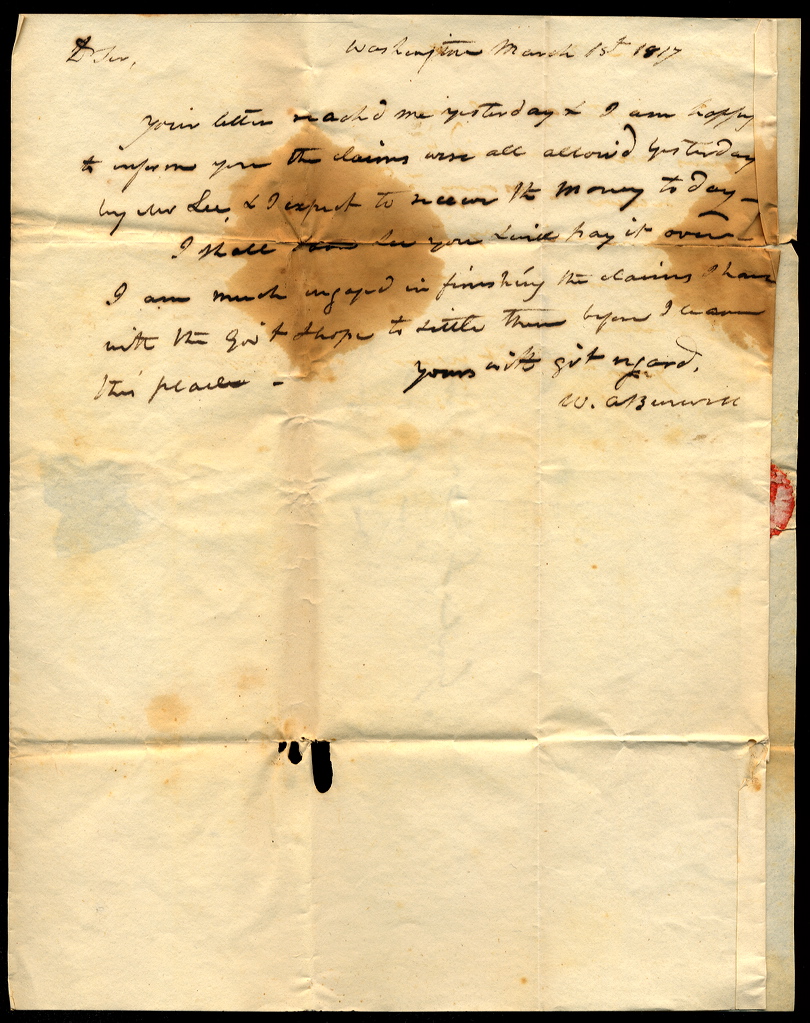 D Sir, Washington March 1st 1817
Your letter reach'd me yesterday & I am happy
to inform you the claims were all allow'd yesterday
by Mr Lee, & I expect to receive the money to day—
I shall soon see you & will pay it over—
I am much engaged in finishing the claims I have
with the Gov't & hope to settle them before I leave
this place —
yours with gt regard,
W. A Burwell